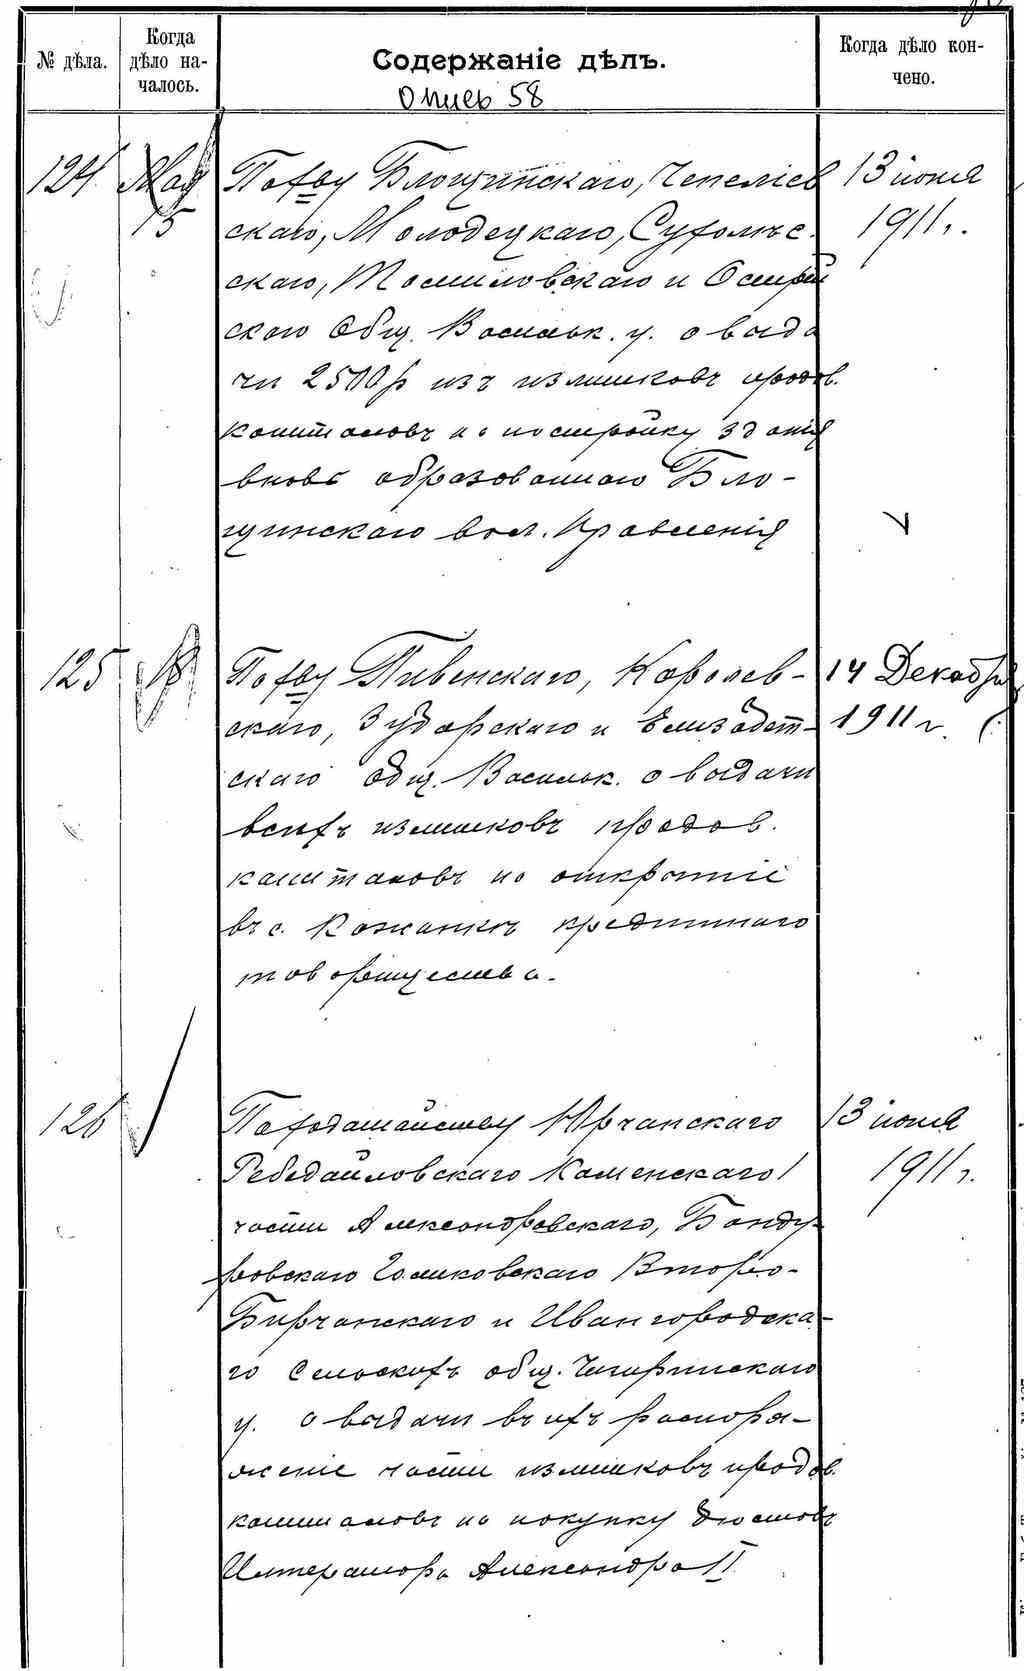 № дѣла.
Когда
дѣло на-
чалось.
Содержаніе дѣлъ.
Когда дѣло кон-
чено.
Опись 58
124
Мая
15
По ход-ву Блощинскаго, Чепеліев
скаго, Молодецкаго, Сухолѣс
скаго, Томиловскаго и Острій
скаго Общ. Васильк. у. о выда
чи 2500 р изъ излишковъ продов.
капиталовъ на постройку зданія
вновь образованнаго Бло-
щинскаго вол. Правленія
13 іюня
1911 г.
125
18
По ход-ву Пивенскаго, Королев-
скаго, и Елизавет-
скаго общ. Васильк. о выдачи
всѣхъ излишковъ продов.
капиталовъ на открытіе
въ с. Кожанкѣ кредитнаго
товарищества.
14 Декабря
1911 г.
126
По ходатайству Юрчанскаго
Ребедайловскаго Каменскаго
части Александровскаго, Банду-
ровскаго Голиковскаго Второ-
Бирчанскаго и Ивангородска-
го Сельскихъ общ. Чигиринскаго
у. о выдачи въ ихъ распоря-
женіе части излишковъ продов.
капиталовъ на покупку бюстовъ
Императора Александра II
13 іюня
1911 г.